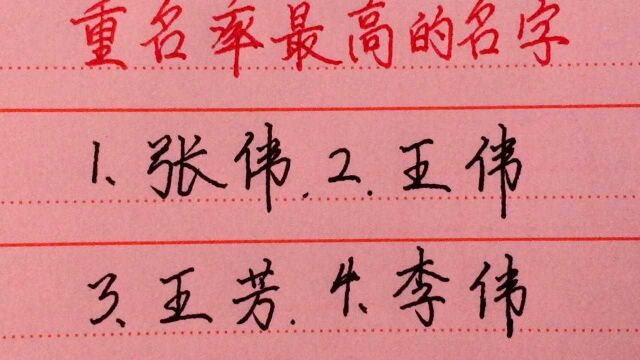 重名率最高的名字
1、张伟.2、王伟
3、王芳.4、李伟